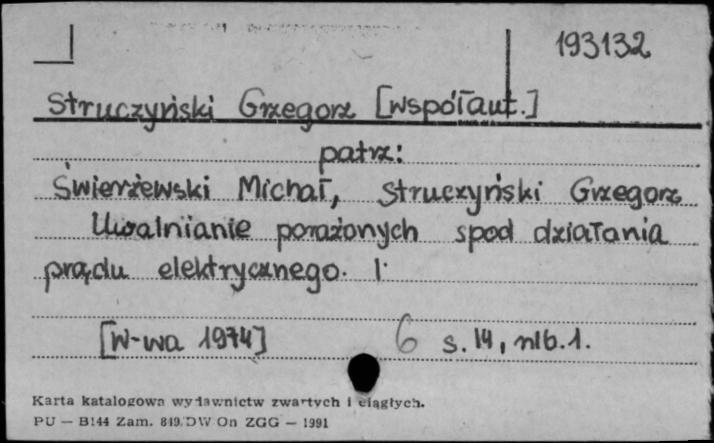 193132
Struczyński Grzegorz [współaut.]
patrz:
Świerżewski Michał, Struczyński Grzegorz
Uwalnianie porażonych spod działania
prądu elektrycznego.
[W-wa 1974] 6 s. 14, nlb. 1.
Karta katalogowa wydawnictw zwartych i ciągłych.
PU — B144 Zam. 849/DW On ZGG — 1991